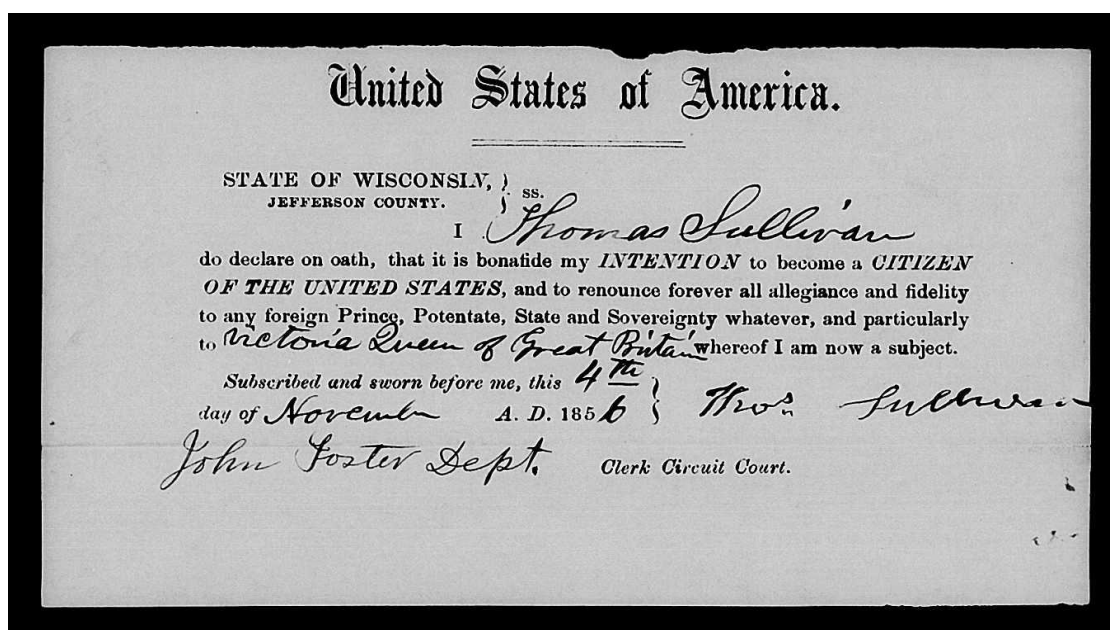 United States of America.
STATE OF WISCONSIN, } ss.
JEFFERSON COUNTY.
I Thomas Sullivan
do declare on oath, that it is bonafide my INTENTION to become a CITIZEN
OF THE UNITED STATES, and to renounce forever all allegiance and fidelity
to any foreign Prince, Potentate, State and Sovereignty whatever, and particularly
to Victoria Queen of Great Britain whereof I am now a subject.
Subscribed and sworn before me, this 4th
day of November A. D. 1856 } Thos Sullivan
John Foster Dept. Clerk Circuit Court.